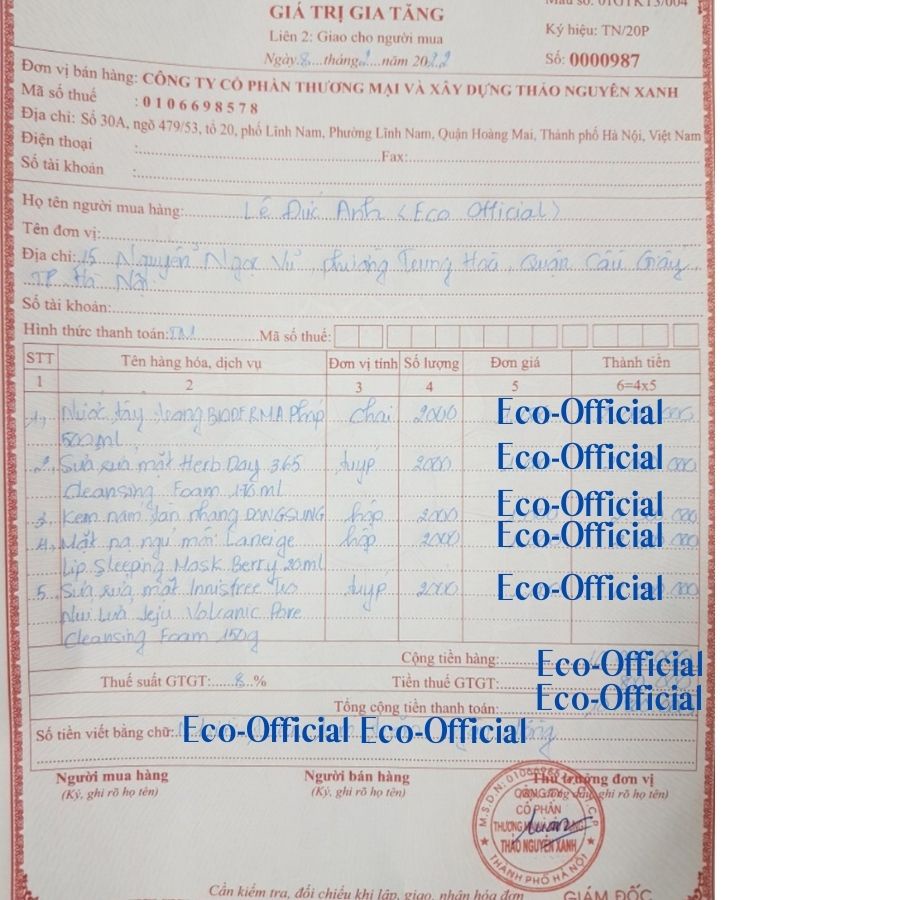 Mẫu số: 01GTKT3/004
GIÁ TRỊ GIA TĂNG
Ký hiệu: TN/20P
Liên 2: Giao cho người mua
Số: 0000987
Ngày 8 tháng 2 năm 2022
Đơn vị bán hàng: CÔNG TY CỔ PHẦN THƯƠNG MẠI VÀ XÂY DỰNG THẢO NGUYÊN XANH
Mã số thuế : 0106698578
Địa chỉ: Số 30A, ngõ 479/53, tổ 20, phố Lĩnh Nam, Phường Lĩnh Nam, Quận Hoàng Mai, Thành phố Hà Nội, Việt Nam
Điện thoại : Fax:
Số tài khoản :
Họ tên người mua hàng: Lê Đức Anh (Eco Official)
Tên đơn vị:
Địa chỉ: 15 Nguyễn Ngọc Vũ, phường Trung Hoà, Quận Cầu Giấy
TP. Hà Nội
Số tài khoản:
Hình thức thanh toán: TM Mã số thuế:
STT Tên hàng hóa, dịch vụ Đơn vị tính Số lượng Đơn giá Thành tiền
1 2 3 4 5 6=4x5
1, Nước tẩy trang BIODERMA Pháp chai 2000 Eco-Official 000
500ml
2, Sữa rửa mặt Herb Day 365 tuýp 2000 Eco-Official 000
Cleansing Foam 170ml
3, Kem nám tàn nhang DONGSUNG hộp 2000 Eco-Official 000
4, Mặt nạ ngủ môi Laneige hộp 2000 Eco-Official 000
Lip Sleeping Mask Berry 20ml
5, Sữa rửa mặt Innisfree tro tuýp 2000 Eco-Official 000
Núi Lửa Jeju Volcanic Pore
Cleansing Foam 150g
Cộng tiền hàng: Eco-Official
Thuế suất GTGT: 8 % Tiền thuế GTGT:
Tổng cộng tiền thanh toán: Eco-Official
Số tiền viết bằng chữ: Eco-Official Eco-Official
Người mua hàng Người bán hàng Thủ trưởng đơn vị
(Ký, ghi rõ họ tên) (Ký, ghi rõ họ tên) ghi rõ họ tên)
CÔNG TY
CỔ PHẦN
THƯƠNG MẠI VÀ XÂY DỰNG
THẢO NGUYÊN XANH
THÀNH PHỐ HÀ NỘI
Cần kiểm tra, đối chiếu khi lập, giao, nhận hóa đơn
GIÁM ĐỐC